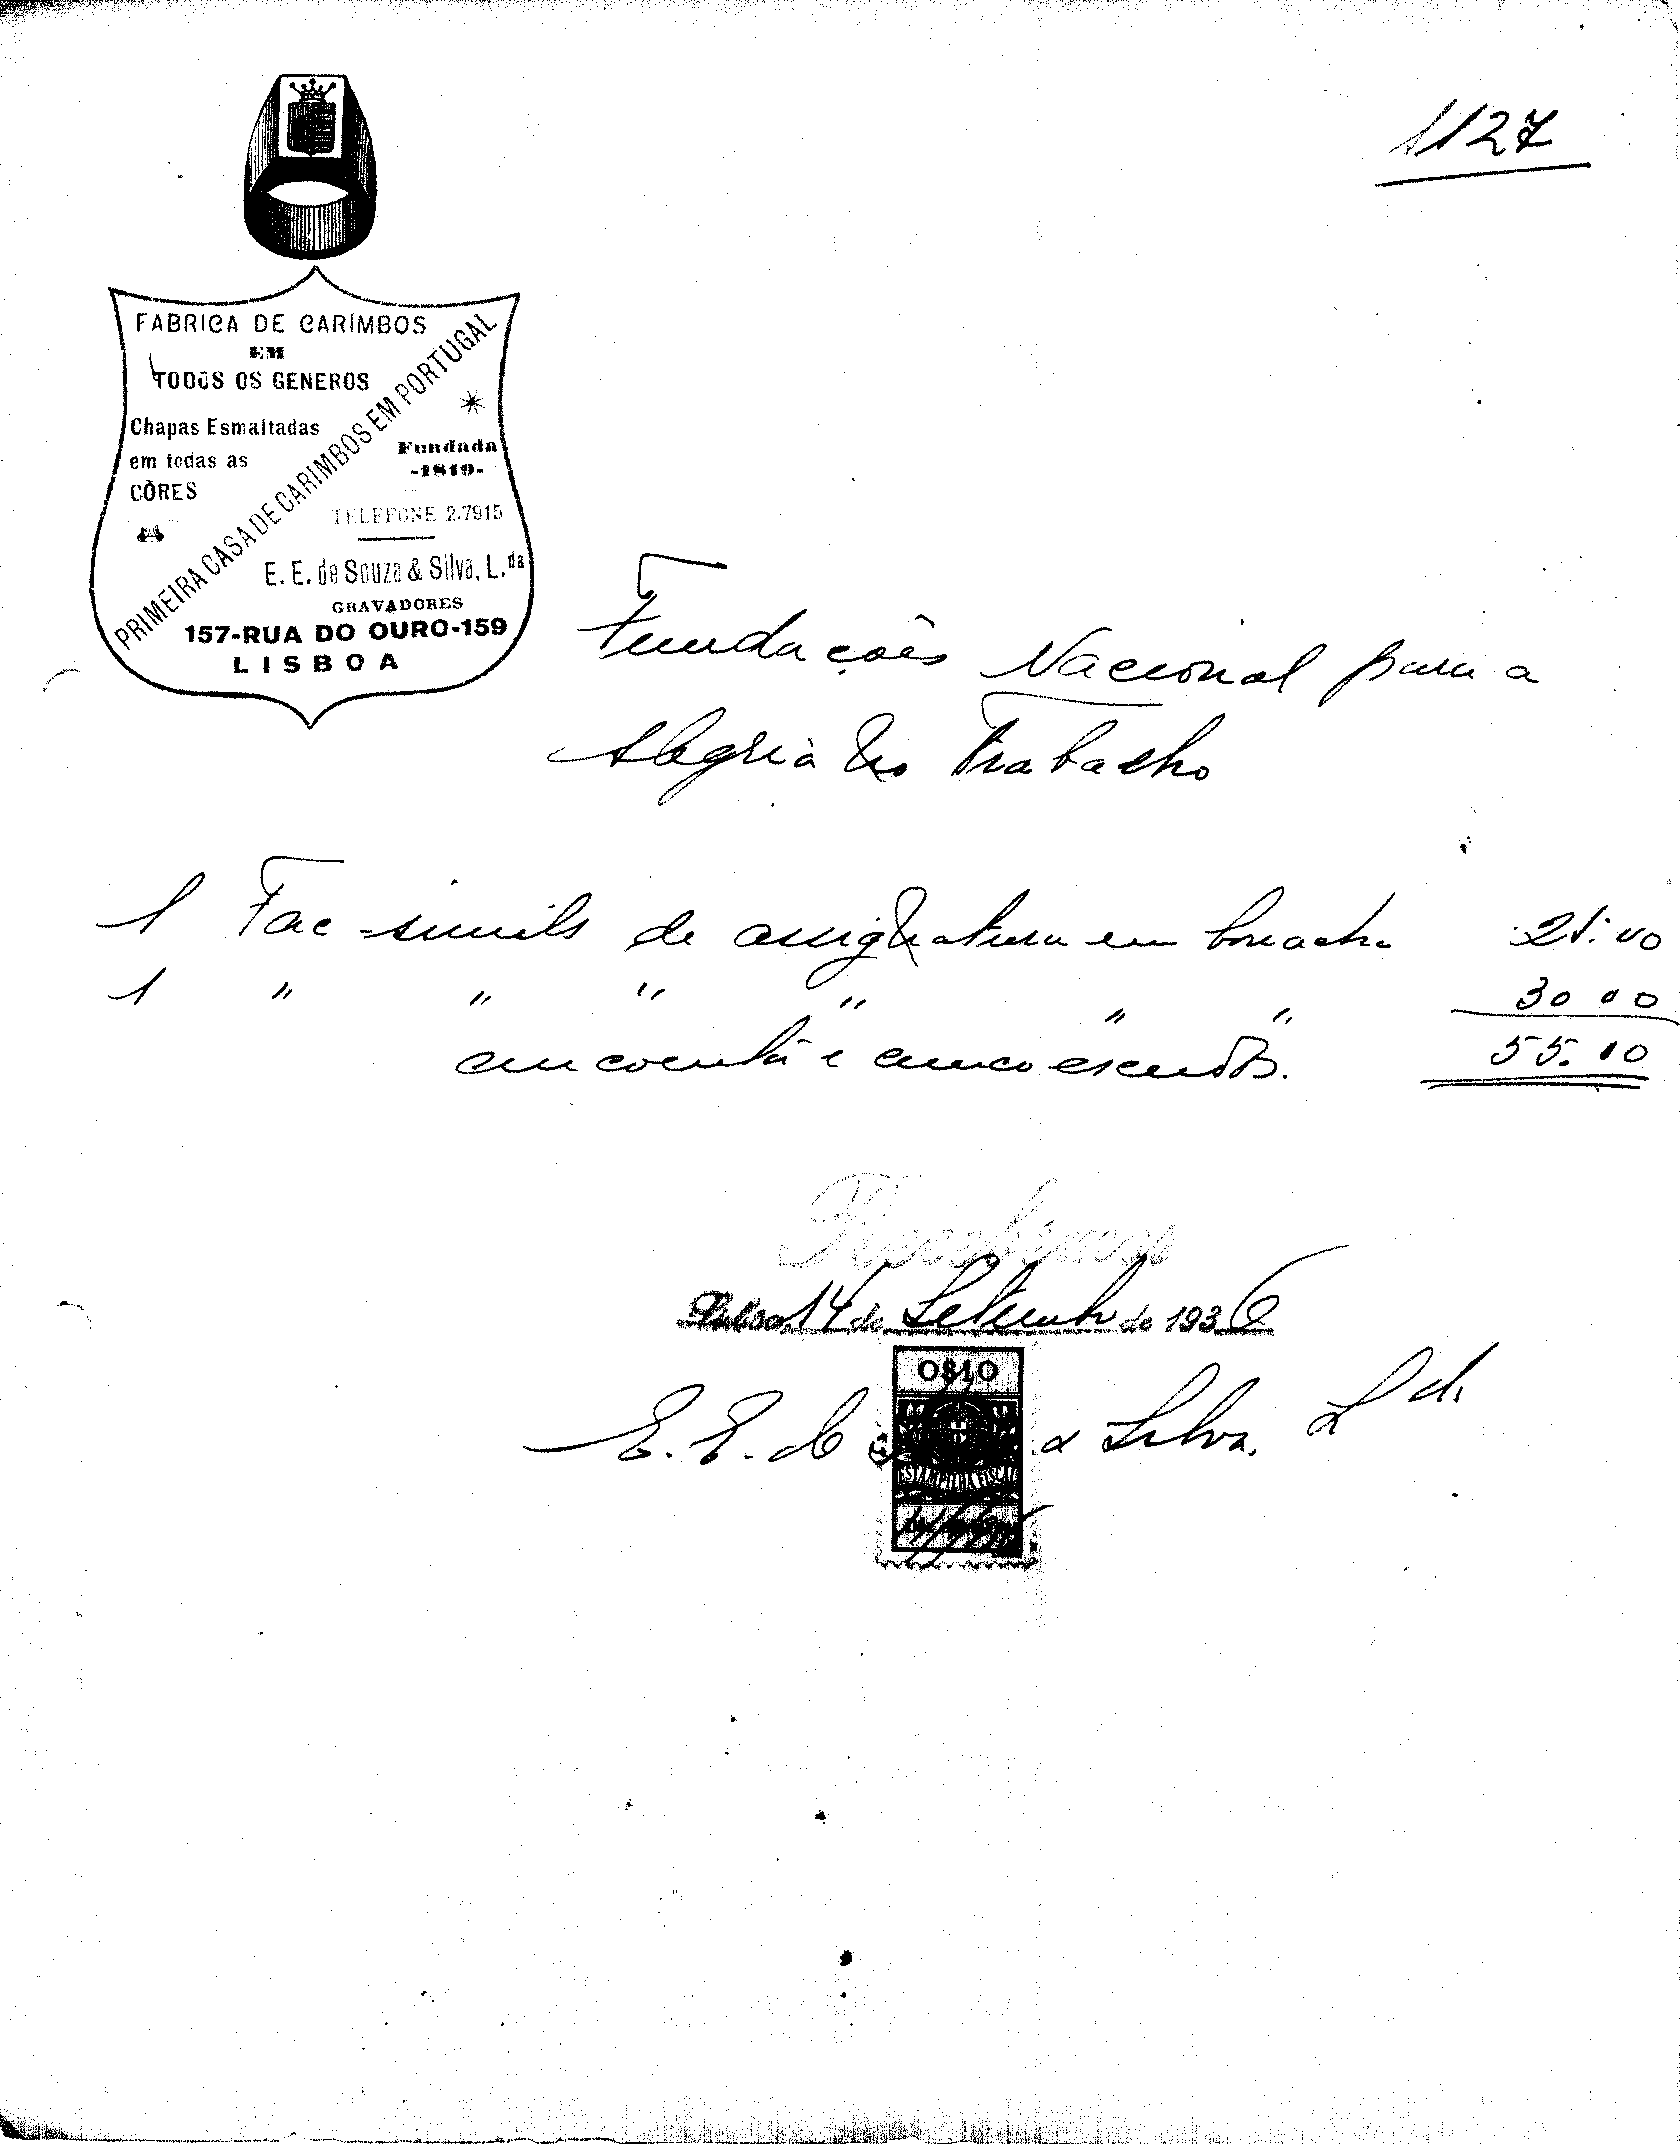 1127
FABRICA DE CARIMBOS
EM
TODOS OS GENEROS
Chapas Esmaltadas
em todas as
CÔRES
PRIMEIRA CASA DE CARIMBOS EM PORTUGAL
Fundada
-1819-
TELEFONE 2.7915
E. E. de Souza & Silva, L.da
GRAVADORES
157-RUA DO OURO-159
LISBOA
Fundações Nacional para a
Alegria no Trabalho
1 Fac-simile de assignatura em borracha 25.00
1 " " " " " " 30 00
cincoenta e cinco escudos. 55.00
Recebemos
Lisboa, 14 de Setembro de 1936
0$10
ESTAMPILHA FISCAL
E. E. de & Silva, Ld.